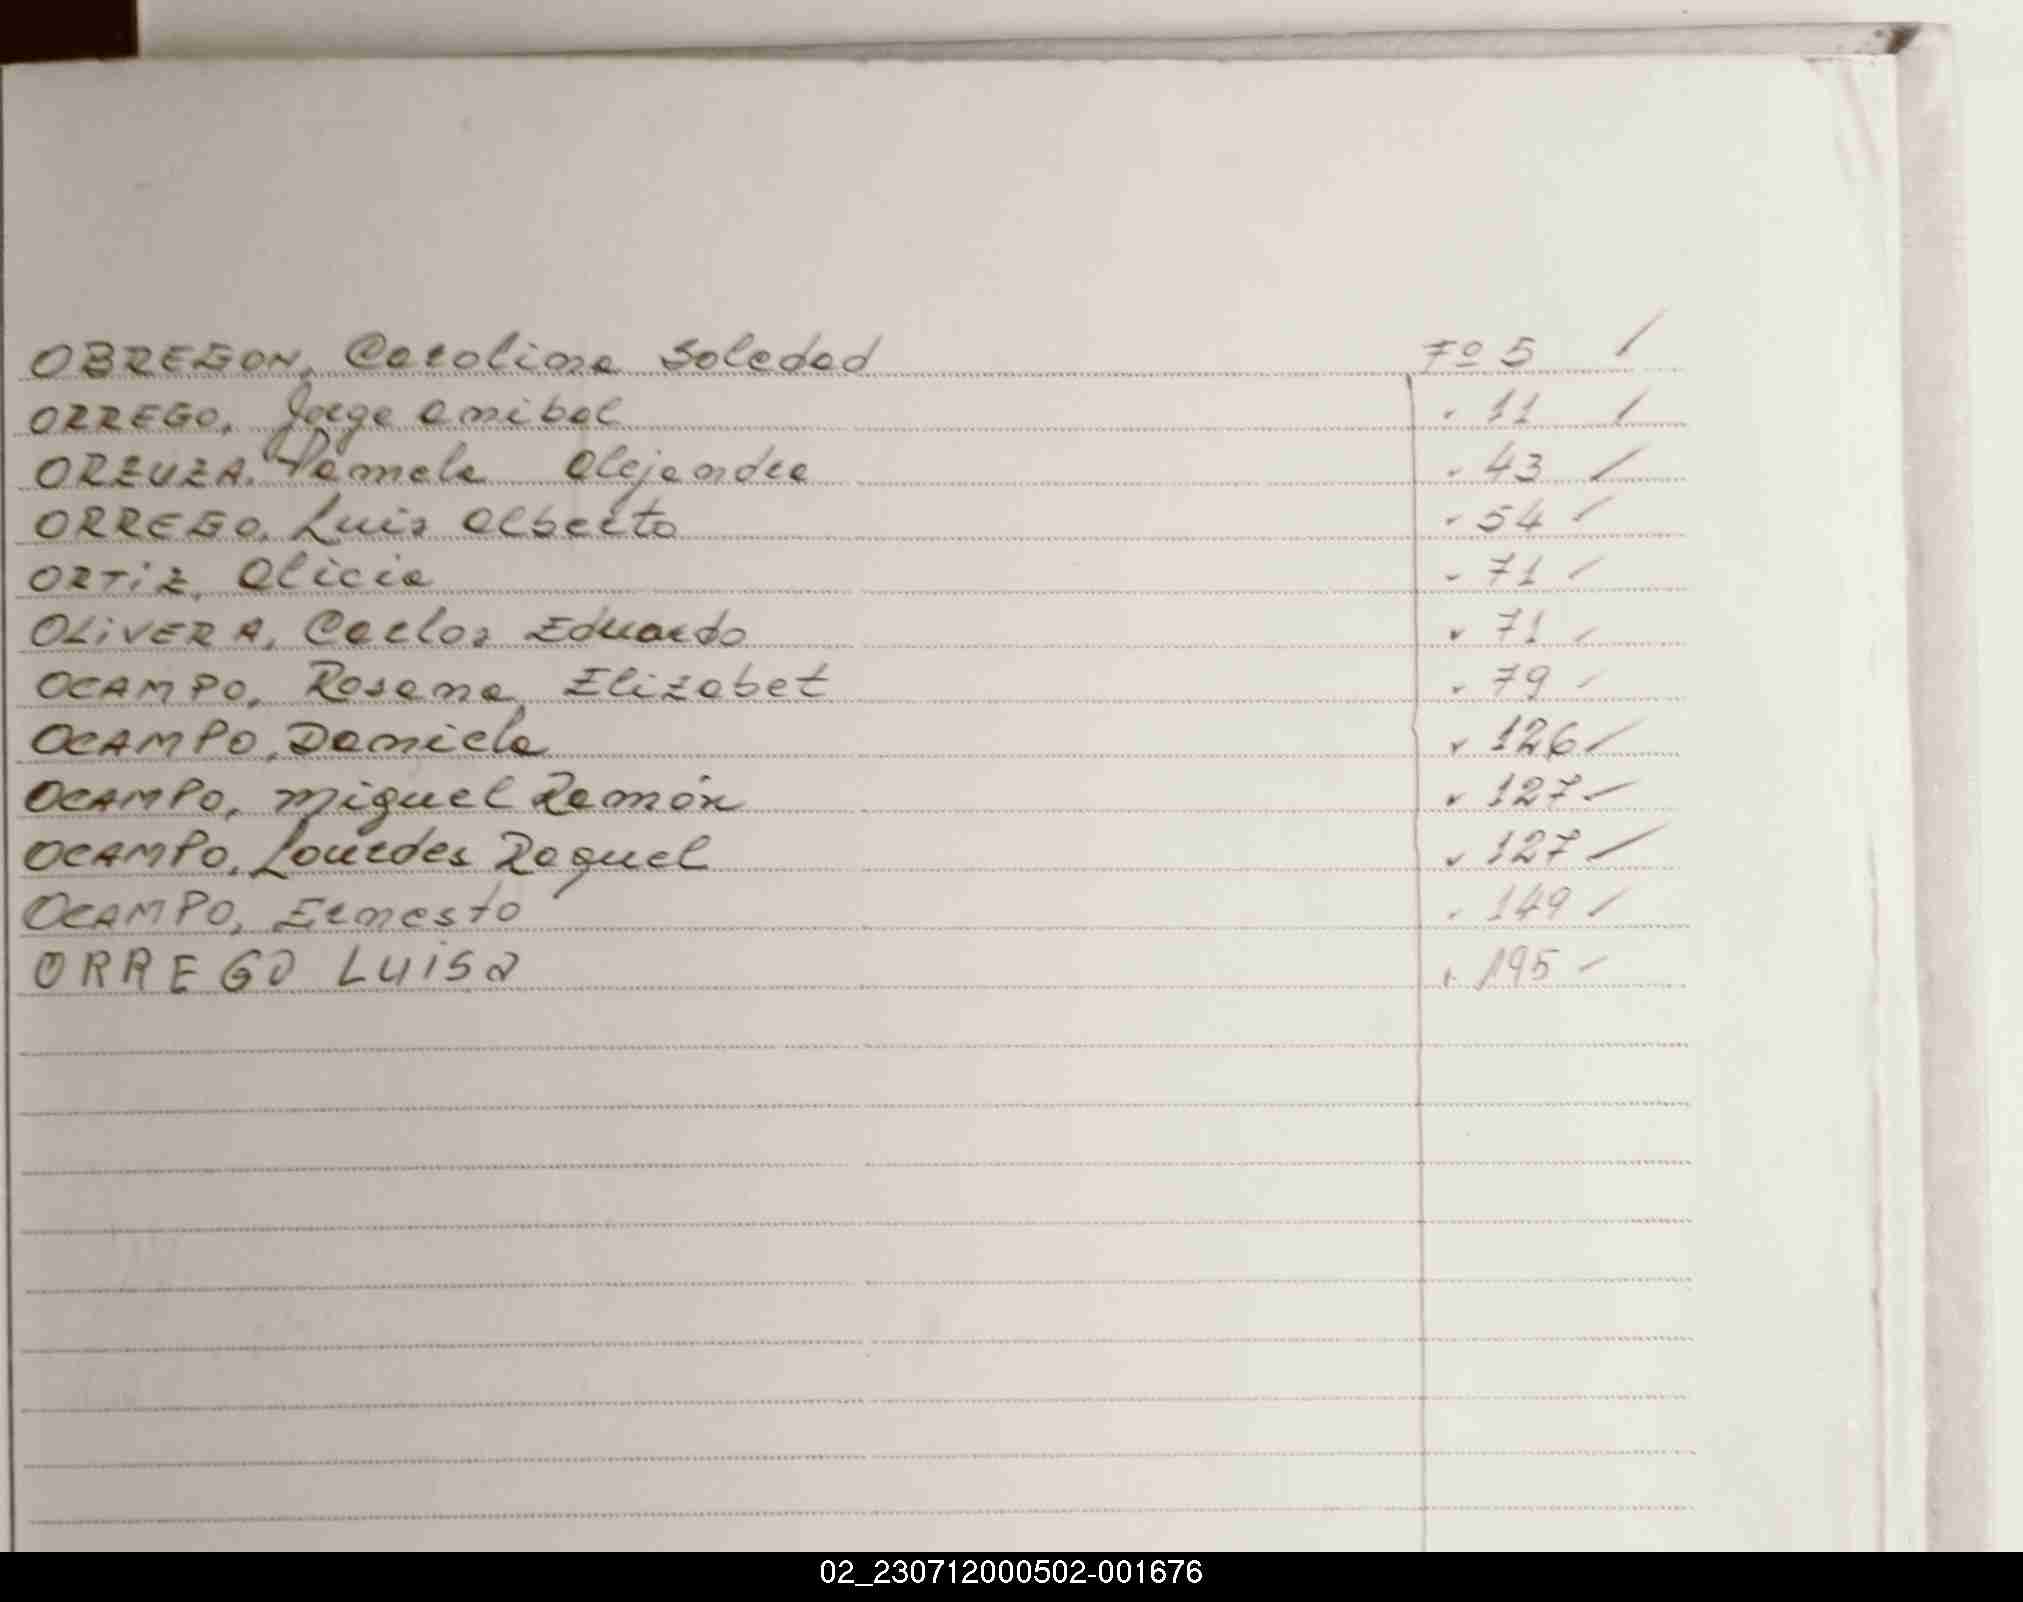 OBREGON, Carolina Soledad Fº 5 /
ORREGO, Jorge Anibal " 11 /
ORZUZA, Pamela Alejandra " 43 /
ORREGO, Luis Alberto " 54 /
ORTiZ, Alicia " 71 /
OLiVERA, Carlos Eduardo " 71 /
OCAMPO, Rosana Elizabet " 79 /
OCAMPO, Daniela " 126 /
OCAMPO, Miguel Ramón " 127 /
OCAMPO, Lourdes Raquel " 127 /
OCAMPO, Ernesto " 149 /
ORREGO LUiSa " 195 /
02_230712000502-001676